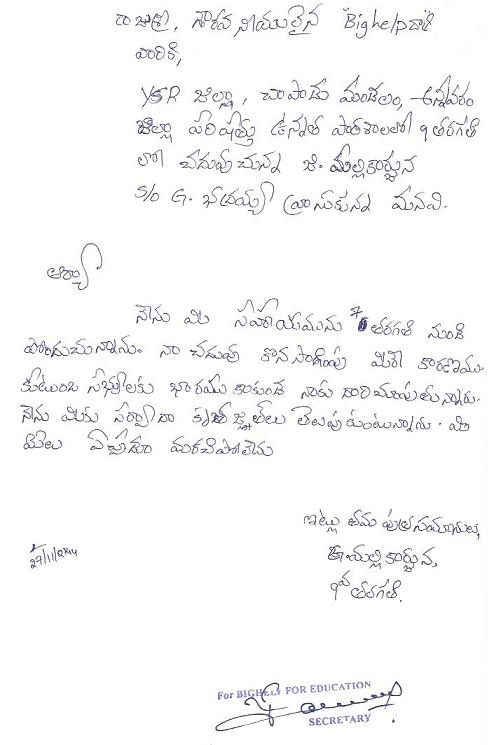 రాజశ్రీ, గౌరవనీయులైన "Bighelp"గారి
వారికి,
YSR జిల్లా, చాపాడు మండలం, అన్నవరం
జిల్లా పరిషత్తు ఉన్నత పాఠశాలలో 9 తరగతి
లో చదువుచున్న జి. మల్లికార్జున
S/o G. వ్రాసుకున్న మనవి.
ఆర్యా
నేను మీ సహాయమును 7 తరగతి నుండి
పొందుచున్నాను. నా చదువు కొనసాగింపు మీరే కారణము.
కుటుంబ సభ్యులకు భారము కాకుండ నాకు దారి చూపుతున్నారు.
నేను మీకు సర్వదా కృతజ్ఞతలు తెలుపుకుంటున్నాను. మీ
మేలు ఎప్పుడూ మరచిపోలేను
ఇట్లు తమ పుత్రసమానుడు,
మల్లికార్జున,
9వ తరగతి.
27/11/2014
For BIGHELP FOR EDUCATION
SECRETARY